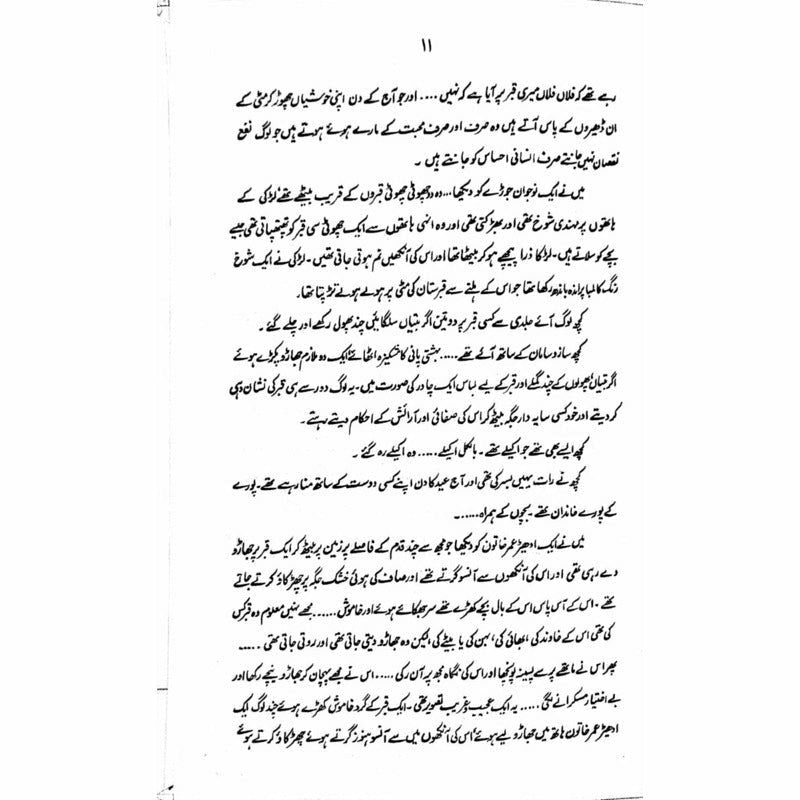 ۱۱
رہے تھے کہ فلاں فلاں میری قبر پر آیا ہے کہ نہیں .... اور جو آج کے دن اپنی خوشیاں چھوڑ کر مٹی کے
ان ڈھیروں کے پاس آتے ہیں وہ صرف اور صرف محبت کے مارے ہوئے ہوتے ہیں جو لوگ نفع
نقصان نہیں جانتے صرف انسانی احساس کو جانتے ہیں ۔
میں نے ایک نوجوان جوڑے کو دیکھا... وہ دو چھوٹی چھوٹی قبروں کے قریب بیٹھے تھے' لڑکی کے
ہاتھوں پر مہندی شوخ تھی اور بھڑکتی تھی اور وہ انہی ہاتھوں سے ایک چھوٹی سی قبر کو تھپتھپاتی تھی جیسے
بچے کو سلاتے ہیں۔ لڑکا ذرا پیچھے ہو کر بیٹھا تھا اور اس کی آنکھیں نم ہوتی جاتی تھیں۔ لڑکی نے ایک شوخ
رنگ کا لمبا پراندہ باندھ رکھا تھا جو اس کے ہلنے سے قبرستان کی مٹی پر ہولے ہولے تڑپتا تھا۔
کچھ لوگ آئے جلدی سے کسی قبر پر دو تین اگر بتیاں سلگائیں چند پھول رکھے اور چلے گئے ۔
کچھ ساز و سامان کے ساتھ آئے تھے ..... بہشتی پانی کا مشکیزہ اٹھائے' ایک دو ملازم جھاڑو پکڑے ہوئے
اگر بتیاں' پھولوں کے چند گملے اور قبر کے لیے لباس ایک چادر کی صورت میں۔ یہ لوگ دور سے ہی قبر کی نشان دہی
کر دیتے اور خود کسی سایہ دار جگہ بیٹھ کر اس کی صفائی اور آرائش کے احکام دیتے رہتے۔
کچھ ایسے بھی تھے جو اکیلے تھے ۔ بالکل اکیلے ..... وہ اکیلے رہ گئے ۔
کچھ نے رات یہیں بسر کی تھی اور آج عید کا دن اپنے کسی دوست کے ساتھ منا رہے تھے۔ پورے
کے پورے خاندان تھے ۔ بچوں کے ہمراہ ......۔
میں نے ایک ادھیڑ عمر خاتون کو دیکھا جو مجھ سے چند قدم کے فاصلے پر زمین پر بیٹھ کر ایک قبر پر جھاڑو
دے رہی تھی اور اس کی آنکھوں سے آنسو گرتے تھے اور صاف کی ہوئی خشک جگہ پر چھڑکاؤ کرتے جاتے
تھے ۔ اس کے آس پاس اس کے بال بچے کھڑے تھے سر جھکائے ہوئے اور خاموش ...... مجھے نہیں معلوم وہ قبر کس
کی تھی اس کے خاوند کی، بھائی کی، بہن کی یا بیٹے کی لیکن وہ جھاڑو دیتی جاتی تھی اور روتی جاتی تھی .....
پھر اس نے ماتھے پر سے پسینہ پونچھا اور اس کی نگاہ مجھ پر آن رکی ..... اس نے مجھے پہچان کر جھاڑو نیچے رکھا اور
بے اختیار مسکرانے لگی ..... یہ ایک عجیب و غریب تصویر تھی ۔ ایک قبر کے گرد خاموش کھڑے ہوئے چند لوگ ایک
ادھیڑ عمر خاتون ہاتھ میں جھاڑو لیے ہوئے' اس کی آنکھوں میں سے آنسو ہنوز گرتے ہوئے چھڑکاؤ کرتے ہوئے